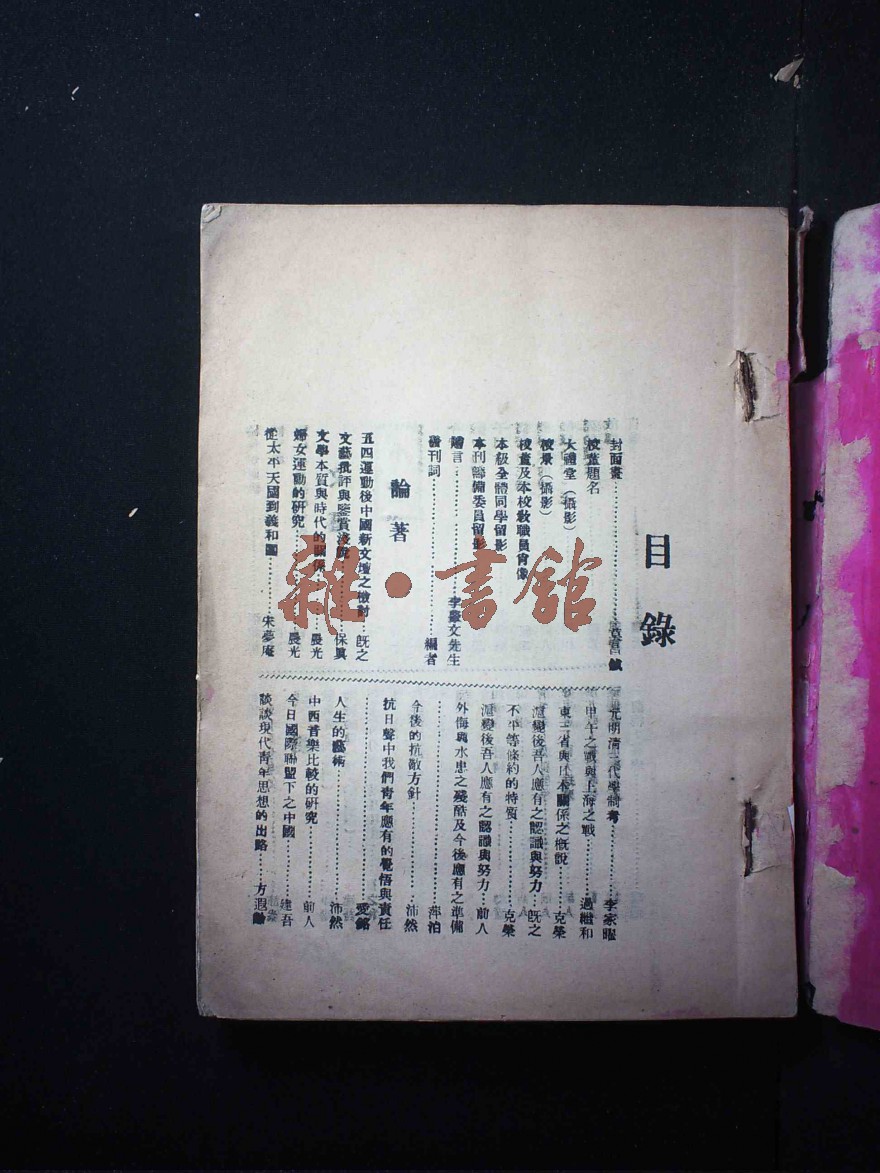 目錄
封面畫
校董題名
大禮堂（攝影）
校景（攝影）
校董及本校教職員肖像
本級全體同學留影
本刊籌備委員留影
言……李文先生
發刊詞……編者
論著
五四運動後中國新文壇之檢討……既之
文藝批評與鑒賞淺說……保真
文學本質與時代的關係……晨光
婦女運動的研究……晨光
從太平天國到義和團……朱夢庵
元明清三代學制考……李家曜
甲午之戰與上海之戰……過繼和
東三省與日本關係之概說……克榮
滬變後吾人應有之認識與努力……既之
不平等條約的特質……克榮
滬變後吾人應有之認識與努力……前人
外侮與水患之殘酷及今後應有之準備
……萍泊
今後的抗敵方針……沛然
抗日聲中我們青年應有的覺悟與責任
……愛銘
人生的藝術……沛然
中西音樂比較的研究……前人
今日國際聯盟下之中國……建吾
談談現代青年思想的出路……方遐
雜·書館